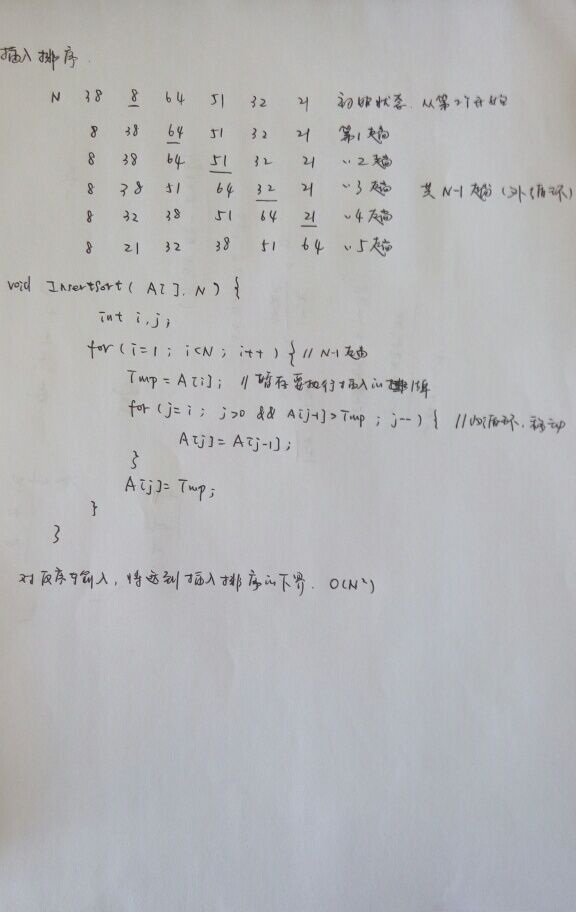 插入排序.
N 38 8 64 51 32 21 初始状态. 从第2个开始
8 38 64 51 32 21 第1趟
8 38 64 51 32 21 〃2趟
8 38 51 64 32 21 〃3趟 共N-1趟 (外循环)
8 32 38 51 64 21 〃4趟
8 21 32 38 51 64 〃5趟
void InsertSort( A[], N) {
int i, j;
for (i=1 ; i<N ; i++) { // N-1趟
Tmp = A[i]; // 暂存要执行插入的
for (j=i ; j>0 && A[j-1]>Tmp ; j--) { // 内循环. 移动
A[j] = A[j-1];
}
A[j] = Tmp;
}
}
对反序输入, 将达到插入排序的下界. O(N²)